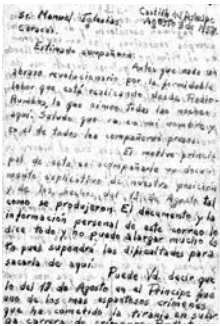 Sr. Manuel Iglesias,
Castillo del Príncipe
Agosto 8 de 1958.
Caracas.
Estimado compañero:
Antes que nada un
abrazo revolucionario por la formidable
labor que está realizando desde Radio
Rumbos, la que oímos todas las noches
aquí. Saludo que va en mi nombre y
en el de todos los compañeros presos.
El motivo princi-
pal de esta es acompañarle un docu-
mento explicativo de nuestra posición
y de los hechos del 1º de Agosto tal
como se produjeron. El documento y la
información personal de este correo lo
dice todo y no puedo alargar mucho és-
ta pues supondrá las dificultades para
sacarla de aquí.
Puede Vd. decir que
lo del 1º de Agosto en el Príncipe fué
uno de los mas espantosos crímenes
que ha cometido la tiranía en su lar-
ga carrera de